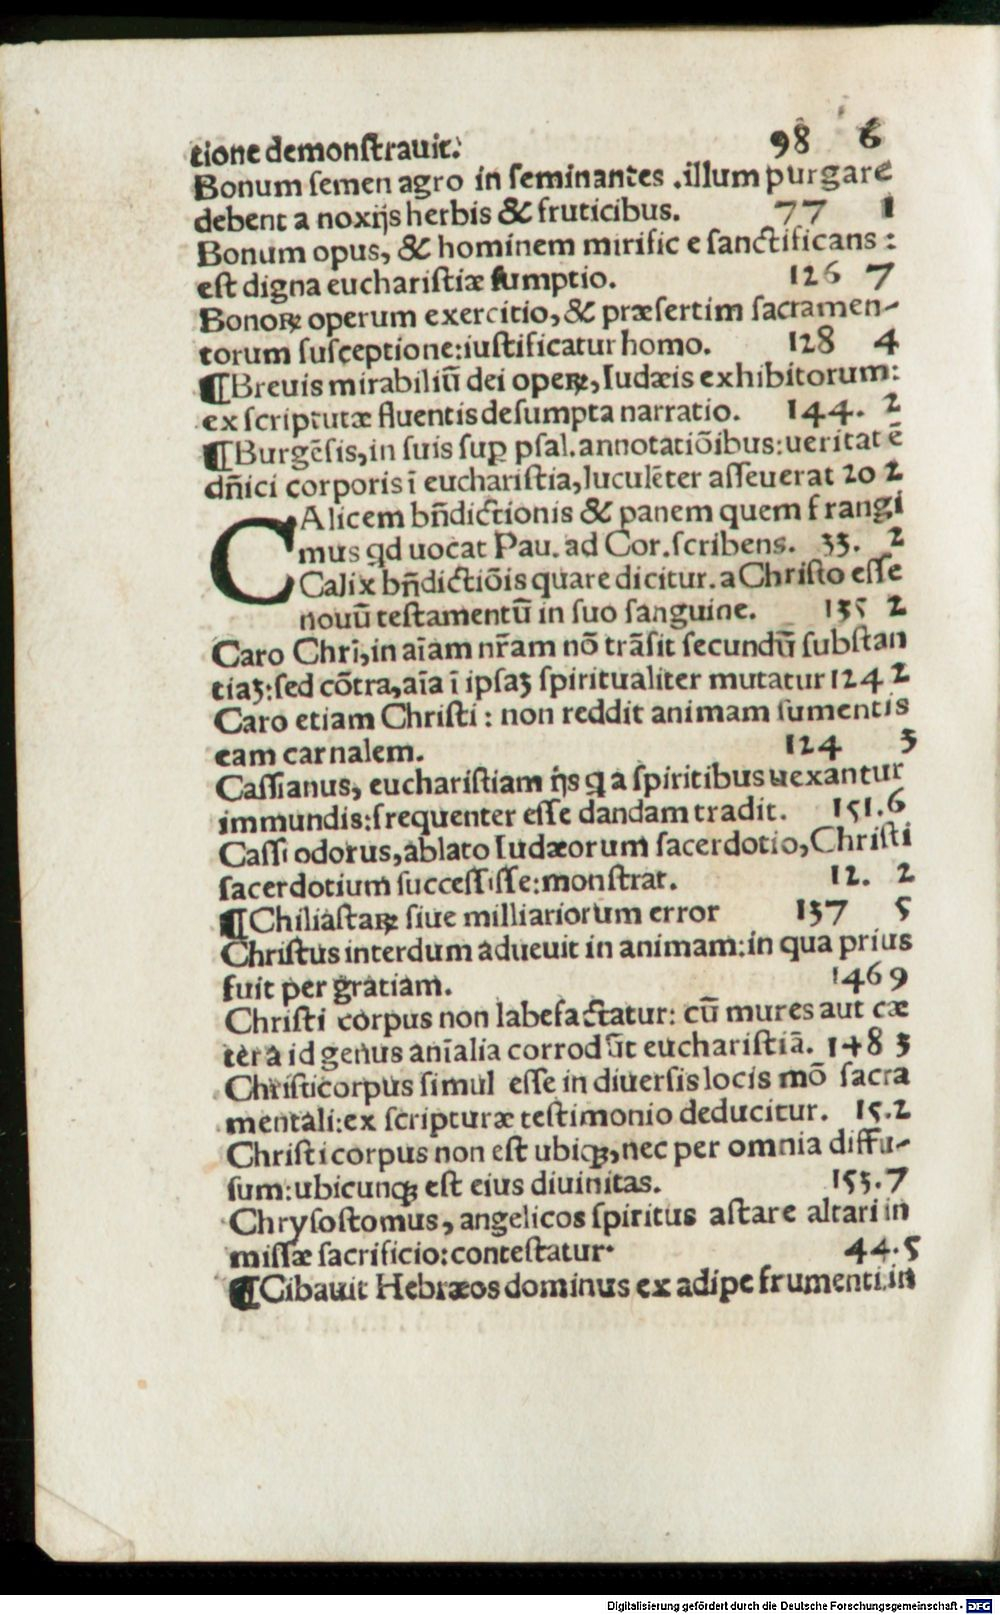 tione demonſtrauit. 98 6
Bonum ſemen agro in ſeminantes .illum purgare
debent a noxijs herbis & fruticibus. 77 1
Bonum opus, & hominem mirific e ſanctificans :
eſt digna euchariſtiæ ſumptio. 126 7
Bonoꝝ operum exercitio, & præſertim ſacramen-
torum ſuſceptione:iuſtificatur homo. 128 4
¶Breuis mirabiliū dei opeꝝ, Iudæis exhibitorum:
ex ſcripturæ fluentis deſumpta narratio. 144. 2
¶Burgēſis,in ſuis ſuꝑ pſal.annotatiōibus:ueritatē
dn̄ici corporis ī euchariſtia,luculēter aſſeuerat 20 2
CAlicem bn̄dictionis & panem quem frangi
mus qd uocat Pau. ad Cor.ſcribens. 33. 2
Calix bn̄dictiōis quare dicitur.a Chriſto eſſe
nouū teſtamentū in ſuo ſanguine. 135 2
Caro Chrī,in aīam nr̄am nō trāſit ſecundū ſubſtan
tiaꝫ:ſed cōtra,aīa ī ipſaꝫ ſpiritualiter mutatur 124 2
Caro etiam Chriſti : non reddit animam ſumentis
eam carnalem. 124 3
Caſſianus, euchariſtiam ijs q a ſpiritibus uexantur
immundis:frequenter eſſe dandam tradit. 151.6
Caſſi odorus,ablato Iudæorum ſacerdotio,Chriſti
ſacerdotium ſucceſſiſſe:monſtrat. 12. 2
¶Chiliaſtaꝝ ſiue milliariorum error 137 5
Chriſtus interdum adueuit in animam:in qua prius
fuit per gratiam. 146 9
Chriſti corpus non labefactatur: cū mures aut cæ
tera id genus anīalia corrodūt euchariſtiā. 148 3
Chriſticorpus ſimul eſſe in diuerſis locis mō ſacra
mentali:ex ſcripturæ teſtimonio deducitur. 15.2
Chriſti corpus non eſt ubiqꝫ,nec per omnia diffu-
ſum:ubicunqꝫ eſt eius diuinitas. 153.7
Chryſoſtomus, angelicos ſpiritus aſtare altari in
miſſæ ſacrificio:conteſtatur. 44.5
¶Cibauit Hebræos dominus ex adipe frumenti:in
Digitalisierung gefördert durch die Deutsche Forschungsgemeinschaft - DFG